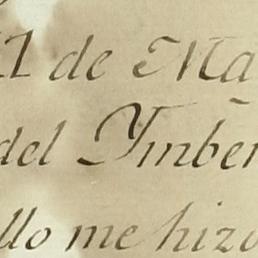 1 de Ma
del Ymber
llo me hizo